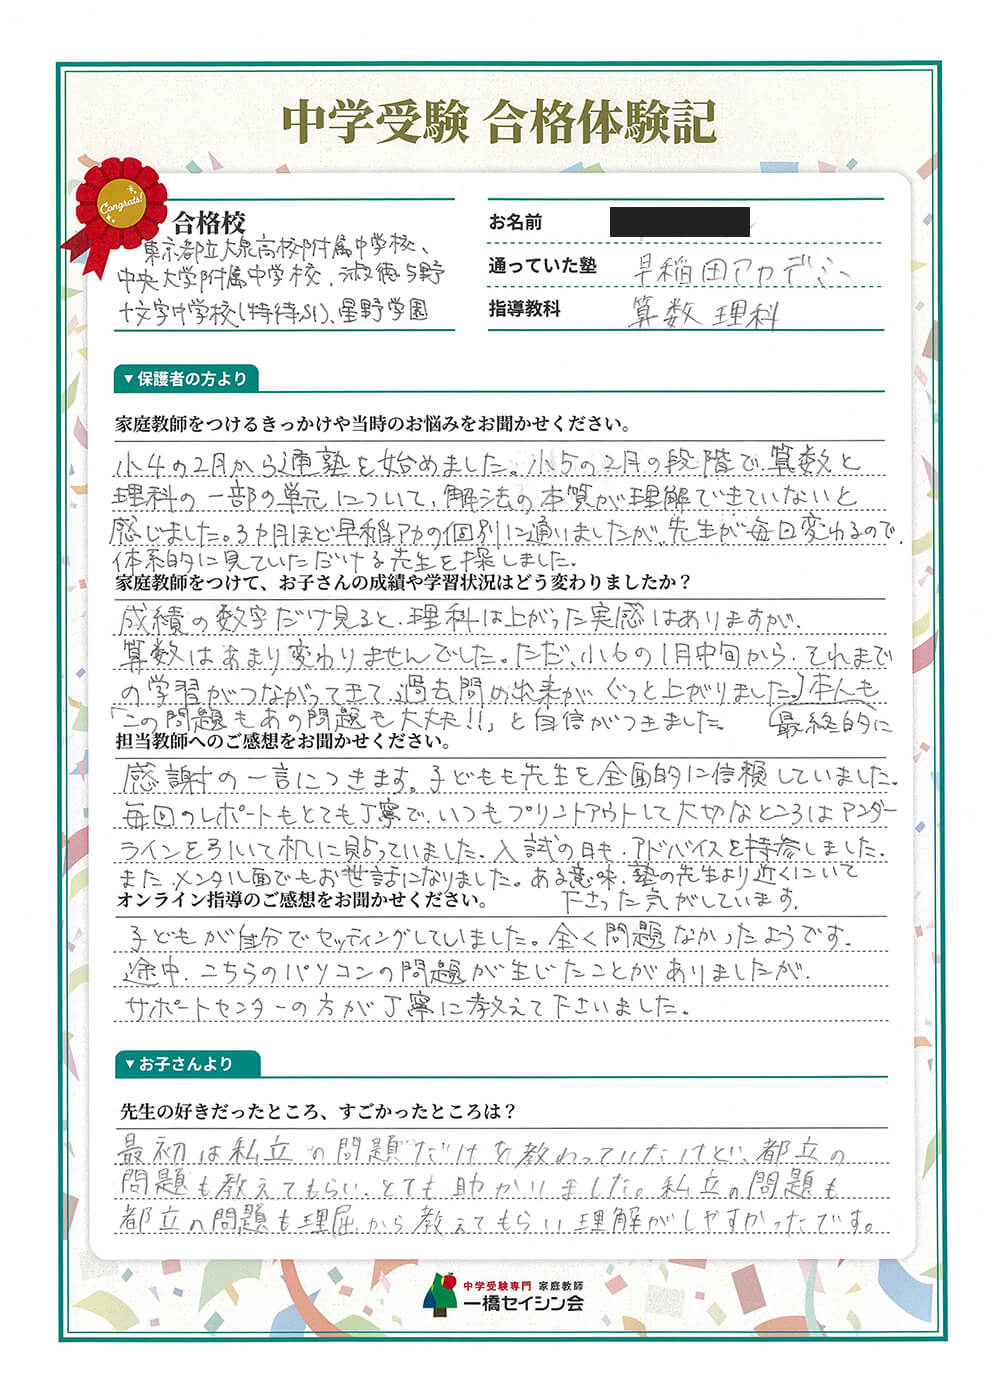 中学受験 合格体験記
Congrats!
合格校
東京都立大泉高校附属中学校、
中央大学附属中学校、淑徳与野
十文字中学校(特待S1)、星野学園
お名前
通っていた塾 早稲田アカデミー
指導教科 算数 理科
▼保護者の方より
家庭教師をつけるきっかけや当時のお悩みをお聞かせください。
小4の2月から通塾を始めました。小5の2月の段階で算数と
理科の一部の単元について、解法の本質が理解できていないと
感じました。3カ月ほど早稲アカの個別に通いましたが、先生が毎回変わるので、
体系的に見ていただける先生を探しました。
家庭教師をつけて、お子さんの成績や学習状況はどう変わりましたか?
成績の数字だけ見ると、理科は上がった実感はありますが、
算数はあまり変わりませんでした。ただ、小6の1月中旬から、それまで
の学習がつながってきて、過去問の出来がぐっと上がりました。本人も
「この問題もあの問題も大丈夫!!」と自信がつきました。 最終的に
担当教師へのご感想をお聞かせください。
感謝の一言につきます。子どもも先生を全面的に信頼していました。
毎回のレポートもとても丁寧で、いつもプリントアウトして大切なところはアンダー
ラインを引いて机に貼っていました。入試の日も、アドバイスを持参しました。
また、メンタル面でもお世話になりました。ある意味、塾の先生より近くにいて
下さった気がしています。
オンライン指導のご感想をお聞かせください。
子どもが自分でセッティングしていました。全く問題なかったようです。
途中、こちらのパソコンの問題が生じたことがありましたが、
サポートセンターの方が丁寧に教えて下さいました。
▼お子さんより
先生の好きだったところ、すごかったところは?
最初は私立の問題だけを教わっていたけど、都立の
問題も教えてもらい、とても助かりました。私立の問題も
都立の問題も理屈から教えてもらい理解がしやすかったです。
中学受験専門 家庭教師
一橋セイシン会